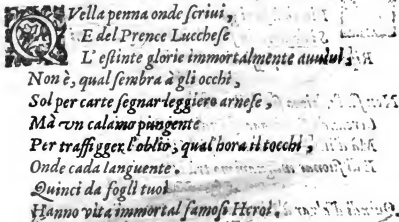 QVella penna onde ſcriui,
E del Prence Luccheſe
L'eſtinte glorie immortalmente auuiui,
Non è, qual ſembra à gli occhi,
Sol per carte ſegnar leggiero arneſe,
Mà vn calamo pungente
Per traffigger l'oblio, qual'hora il tocchi,
Onde cada languente.
Quinci da fogli tuoi
Hanno vita immortal famoſi Heroi.